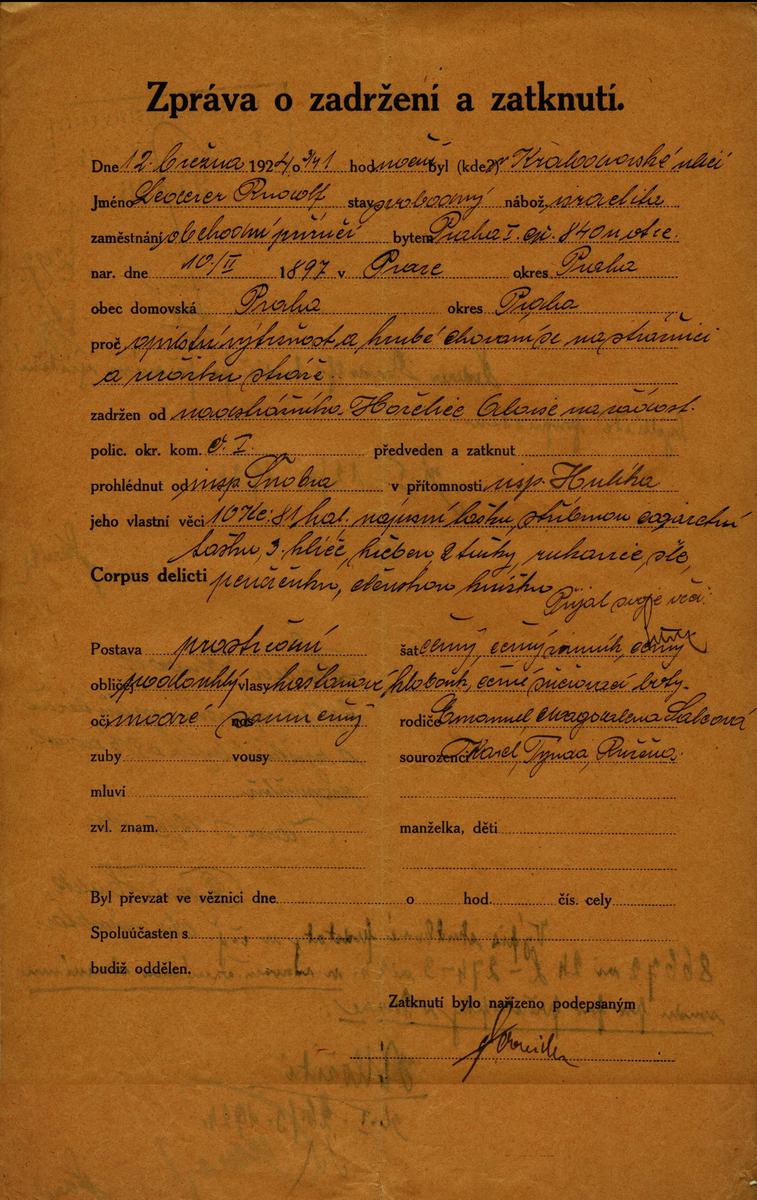 Zpráva o zadržení a zatknutí.
Dne 12. března 1924 o 3/41 hod. noční byl (kde?) v Královdvorské ulici
Jméno Lederer Rudolf stav svobodný nábož. israelita
zaměstnání obchodní příručí bytem Praha I. čp. 840 u otce.
nar. dne 10/II 1897 v Praze okres Praha
obec domovská Praha okres Praha
proč opilství výtržnost a hrubé chování se na strážnici
a urážku stráže.
zadržen od nadstrážníka Hořelice Aloise na žádost
polic. okr. kom. č. I. předveden a zatknut
prohlédnut od insp. v přítomnosti insp. Hulíka
jeho vlastní věci 10 Kč 81 hal. náprsní tašku, stříbrnou cigaretní
tašku, 3 klíče, hřeben 2 tužky, rukavice,
Corpus delicti peněženku, členskou knížku
Přijal svoje věci:
Postava prostřední šat černý, černý zimník, černý
obličej podlouhlý vlasy kaštanové klobouk, černé šněrovací boty.
oči modré nos rodiče Emanuel Magdalena
zuby vousy sourozenci Karel, Růžena.
mluví
zvl. znam. manželka, děti
Byl převzat ve věznici dne o hod. čís. cely
Spoluúčasten s
budiž oddělen.
Zatknutí bylo nařízeno podepsaným